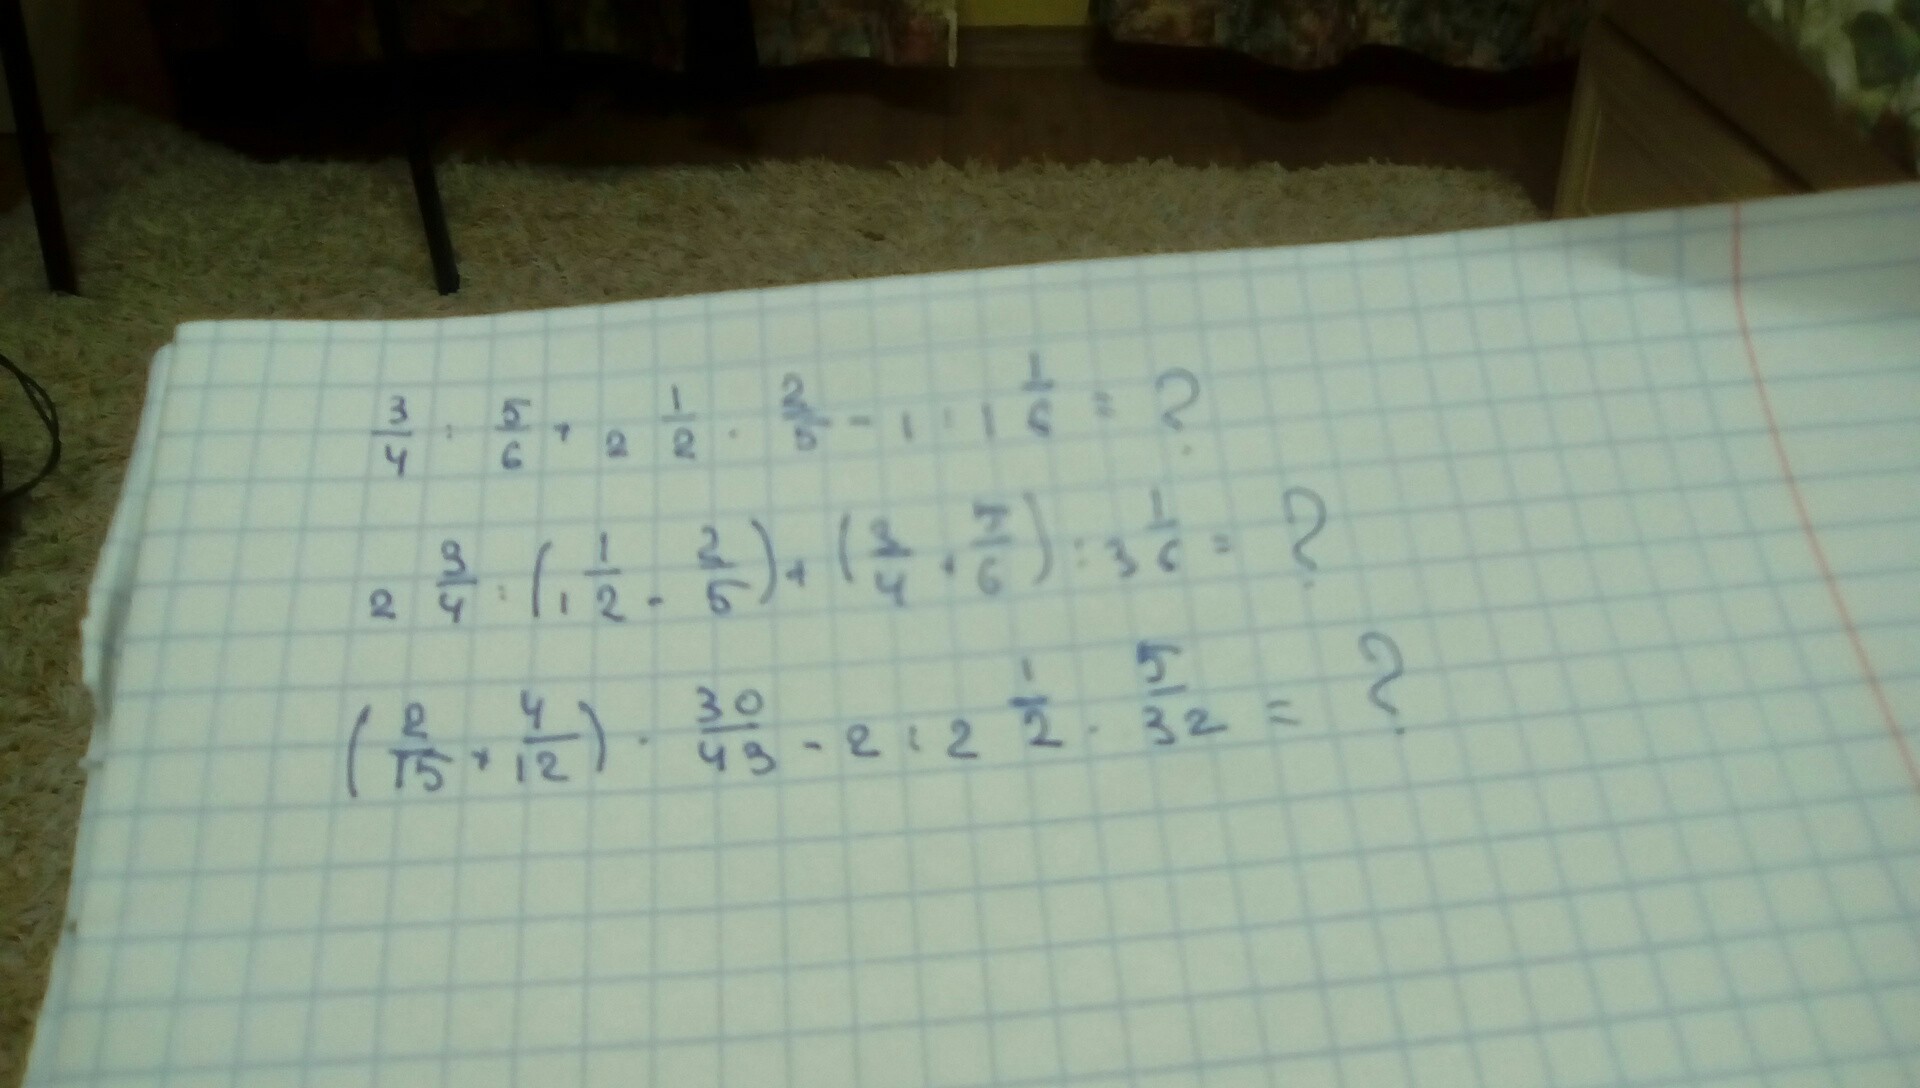 3/4 : 5/6 + 2 1/2 · 2/5 - 1 : 1 1/6 = ?
2 3/4 : (1 1/2 - 2/5) + (3/4 + 7/6) : 3 1/6 = ?
(2/15 + 4/12) · 30/49 - 2 : 2 1/2 · 5/32 = ?